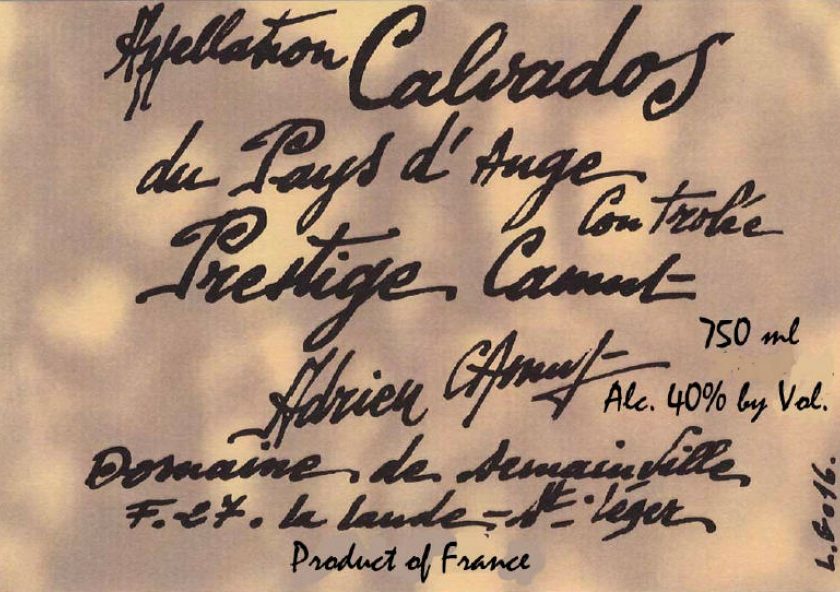 Appellation Calvados
du Pays d'Auge
Controlée
Prestige Camut
750 ml
Adrien Camut
Alc. 40% by Vol.
Domaine de Semainville
F.27. La Lande-St. Léger
Product of France
L.6016.